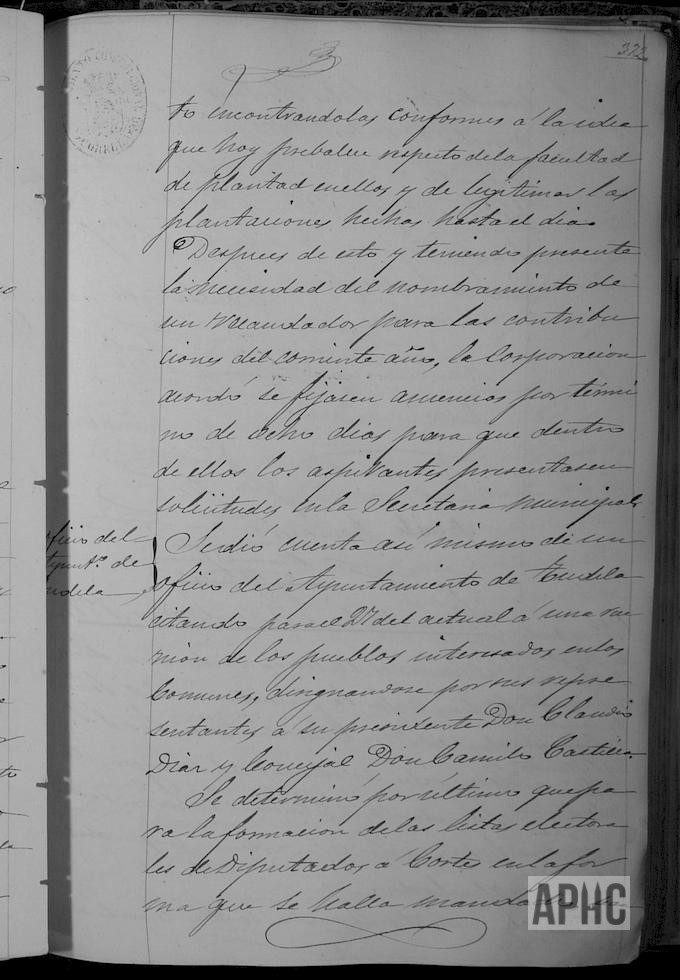 322
to encontrandolas conformes á la idea
que hoy prebalece respecto de la facultad
de plantad en ellos y de legitimar las
plantaciones hechas hasta el dia.
Despues de esto y teniendo presente
la necesidad del nombramiento de
un recaudador para las contribu
ciones del corriente año, la Corporacion
acordó se fijasen anuncios por térmi
no de ocho dias para que dentro
de ellos los aspirantes presentasen
solicitudes en la Secretaria municipal
oficio del
Ayunt.º de
udela
Se dió cuenta asi mismo de un
oficio del Ayuntamiento de Tudela
citando para el 27 del actual á una reu
nion de los pueblos interesados en los
Comunes, designandose por sus repre
sentantes á su presidente Don Claudio
Diaz y Concejal Don Camilo Castilla
Se determinó por último que pa
ra la formacion de las listas electora
les de Diputados á Cortes en la for
ma que se halla mandado
APHC